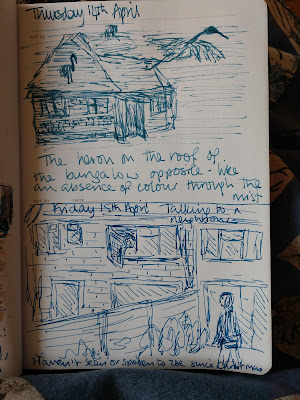 Thursday 14th April
The heron on the roof of
the bungalow opposite - like
an absence of colour through the
mist
Friday 15th April Talking to a
neighbour
Haven't seen or spoken to since Christmas